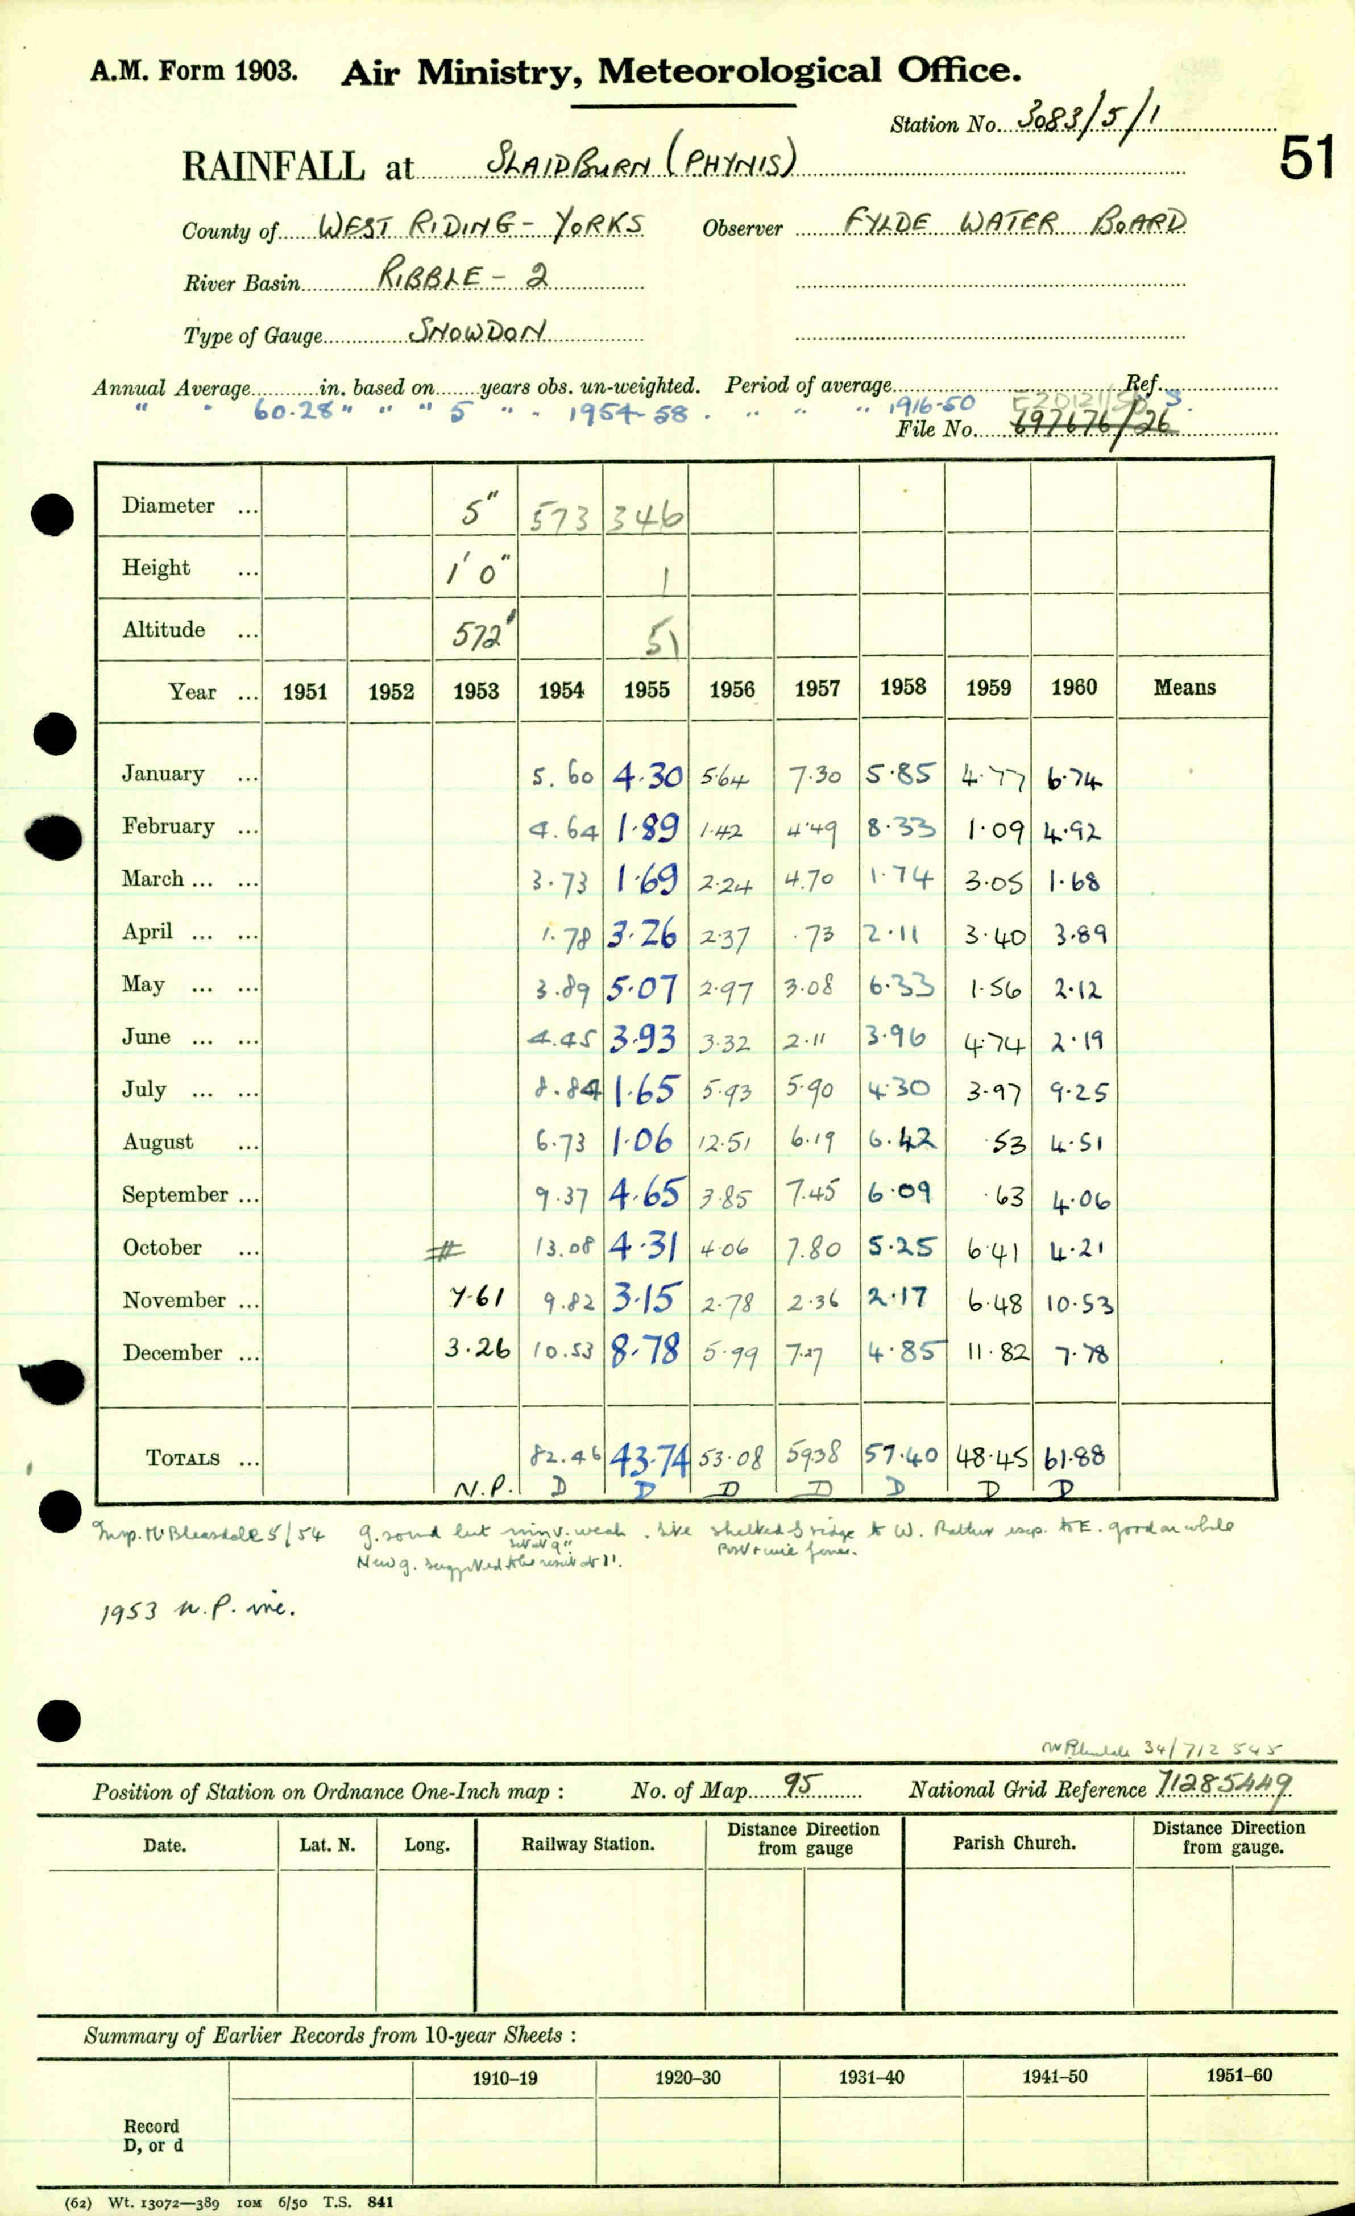 A.M. Form 1903. Air Ministry, Meteorological Office.
Station No. 3083/5/1
51
RAINFALL at SLAIDBURN (PHYNIS)
County of WEST RIDING - YORKS Observer FYLDE WATER BOARD
River Basin RIBBLE - 2
Type of Gauge SNOWDON
Annual Average in. based on years obs. un-weighted. Period of average Ref.
" " 60.28 " " " 5 " " 1954-58 . " " " 1916-50
File No. 697676/26
Diameter ... 5" 573 346
Height ... 1' 0" 1
Altitude ... 572' 51
Year ... 1951 1952 1953 1954 1955 1956 1957 1958 1959 1960 Means
January ... 5.60 4.30 5.64 7.30 5.85 4.77 6.74
February ... 4.64 1.89 1.42 4.49 8.33 1.09 4.92
March ... ... 3.73 1.69 2.24 4.70 1.74 3.05 1.68
April ... ... 1.78 3.26 2.37 .73 2.11 3.40 3.89
May ... ... 3.89 5.07 2.97 3.08 6.33 1.56 2.12
June ... ... 4.45 3.93 3.32 2.11 3.96 4.74 2.19
July ... ... 8.84 1.65 5.93 5.90 4.30 3.97 9.25
August ... 6.73 1.06 12.51 6.19 6.42 .53 4.51
September ... 9.37 4.65 3.85 7.45 6.09 .63 4.06
October ... # 13.08 4.31 4.06 7.80 5.25 6.41 4.21
November ... 7.61 9.82 3.15 2.78 2.36 2.17 6.48 10.53
December ... 3.26 10.53 8.78 5.99 7.27 4.85 11.82 7.78
TOTALS ... 82.46 43.74 53.08 59.38 57.40 48.45 61.88
N.P. D D D D D D D
Insp. Mr Bleasdale 5/54 g. sound but weak . Site W. esp. to E. good on whole
set at 9"
New g. suggested to be at 1'.
Post & wire fence.
1953 N.P. inc.
34/712 545
Position of Station on Ordnance One-Inch map : No. of Map 95 National Grid Reference 71285449
Date. Lat. N. Long. Railway Station. Distance Direction from gauge Parish Church. Distance Direction from gauge.
Summary of Earlier Records from 10-year Sheets :
1910–19 1920–30 1931–40 1941–50 1951–60
Record
D, or d
(62) Wt. 13072—389 10M 6/50 T.S. 841